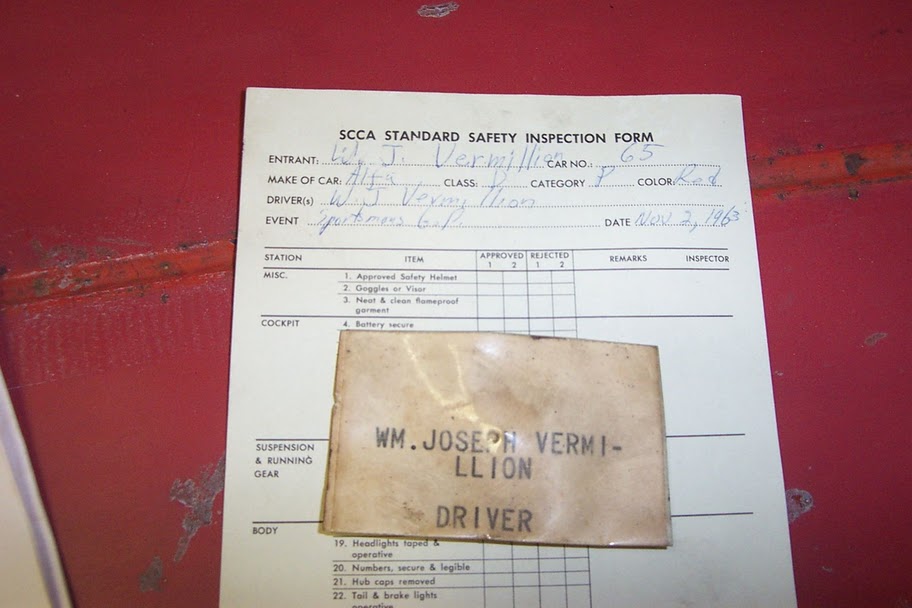 SCCA STANDARD SAFETY INSPECTION FORM
ENTRANT: W. J. Vermillion CAR NO.: 65
MAKE OF CAR: Alfa CLASS: D CATEGORY P COLOR: Red
DRIVER(s) W J Vermillion
EVENT Sportsmens G.P. DATE Nov 2, 1963
STATION ITEM APPROVED REJECTED REMARKS INSPECTOR
1 2 1 2
MISC. 1. Approved Safety Helmet
2. Goggles or Visor
3. Neat & clean flameproof
garment
COCKPIT 4. Battery secure
WM. JOSEPH VERMI-
LLION
DRIVER
SUSPENSION
& RUNNING
GEAR
BODY
19. Headlights taped &
operative
20. Numbers, secure & legible
21. Hub caps removed
22. Tail & brake lights
operative